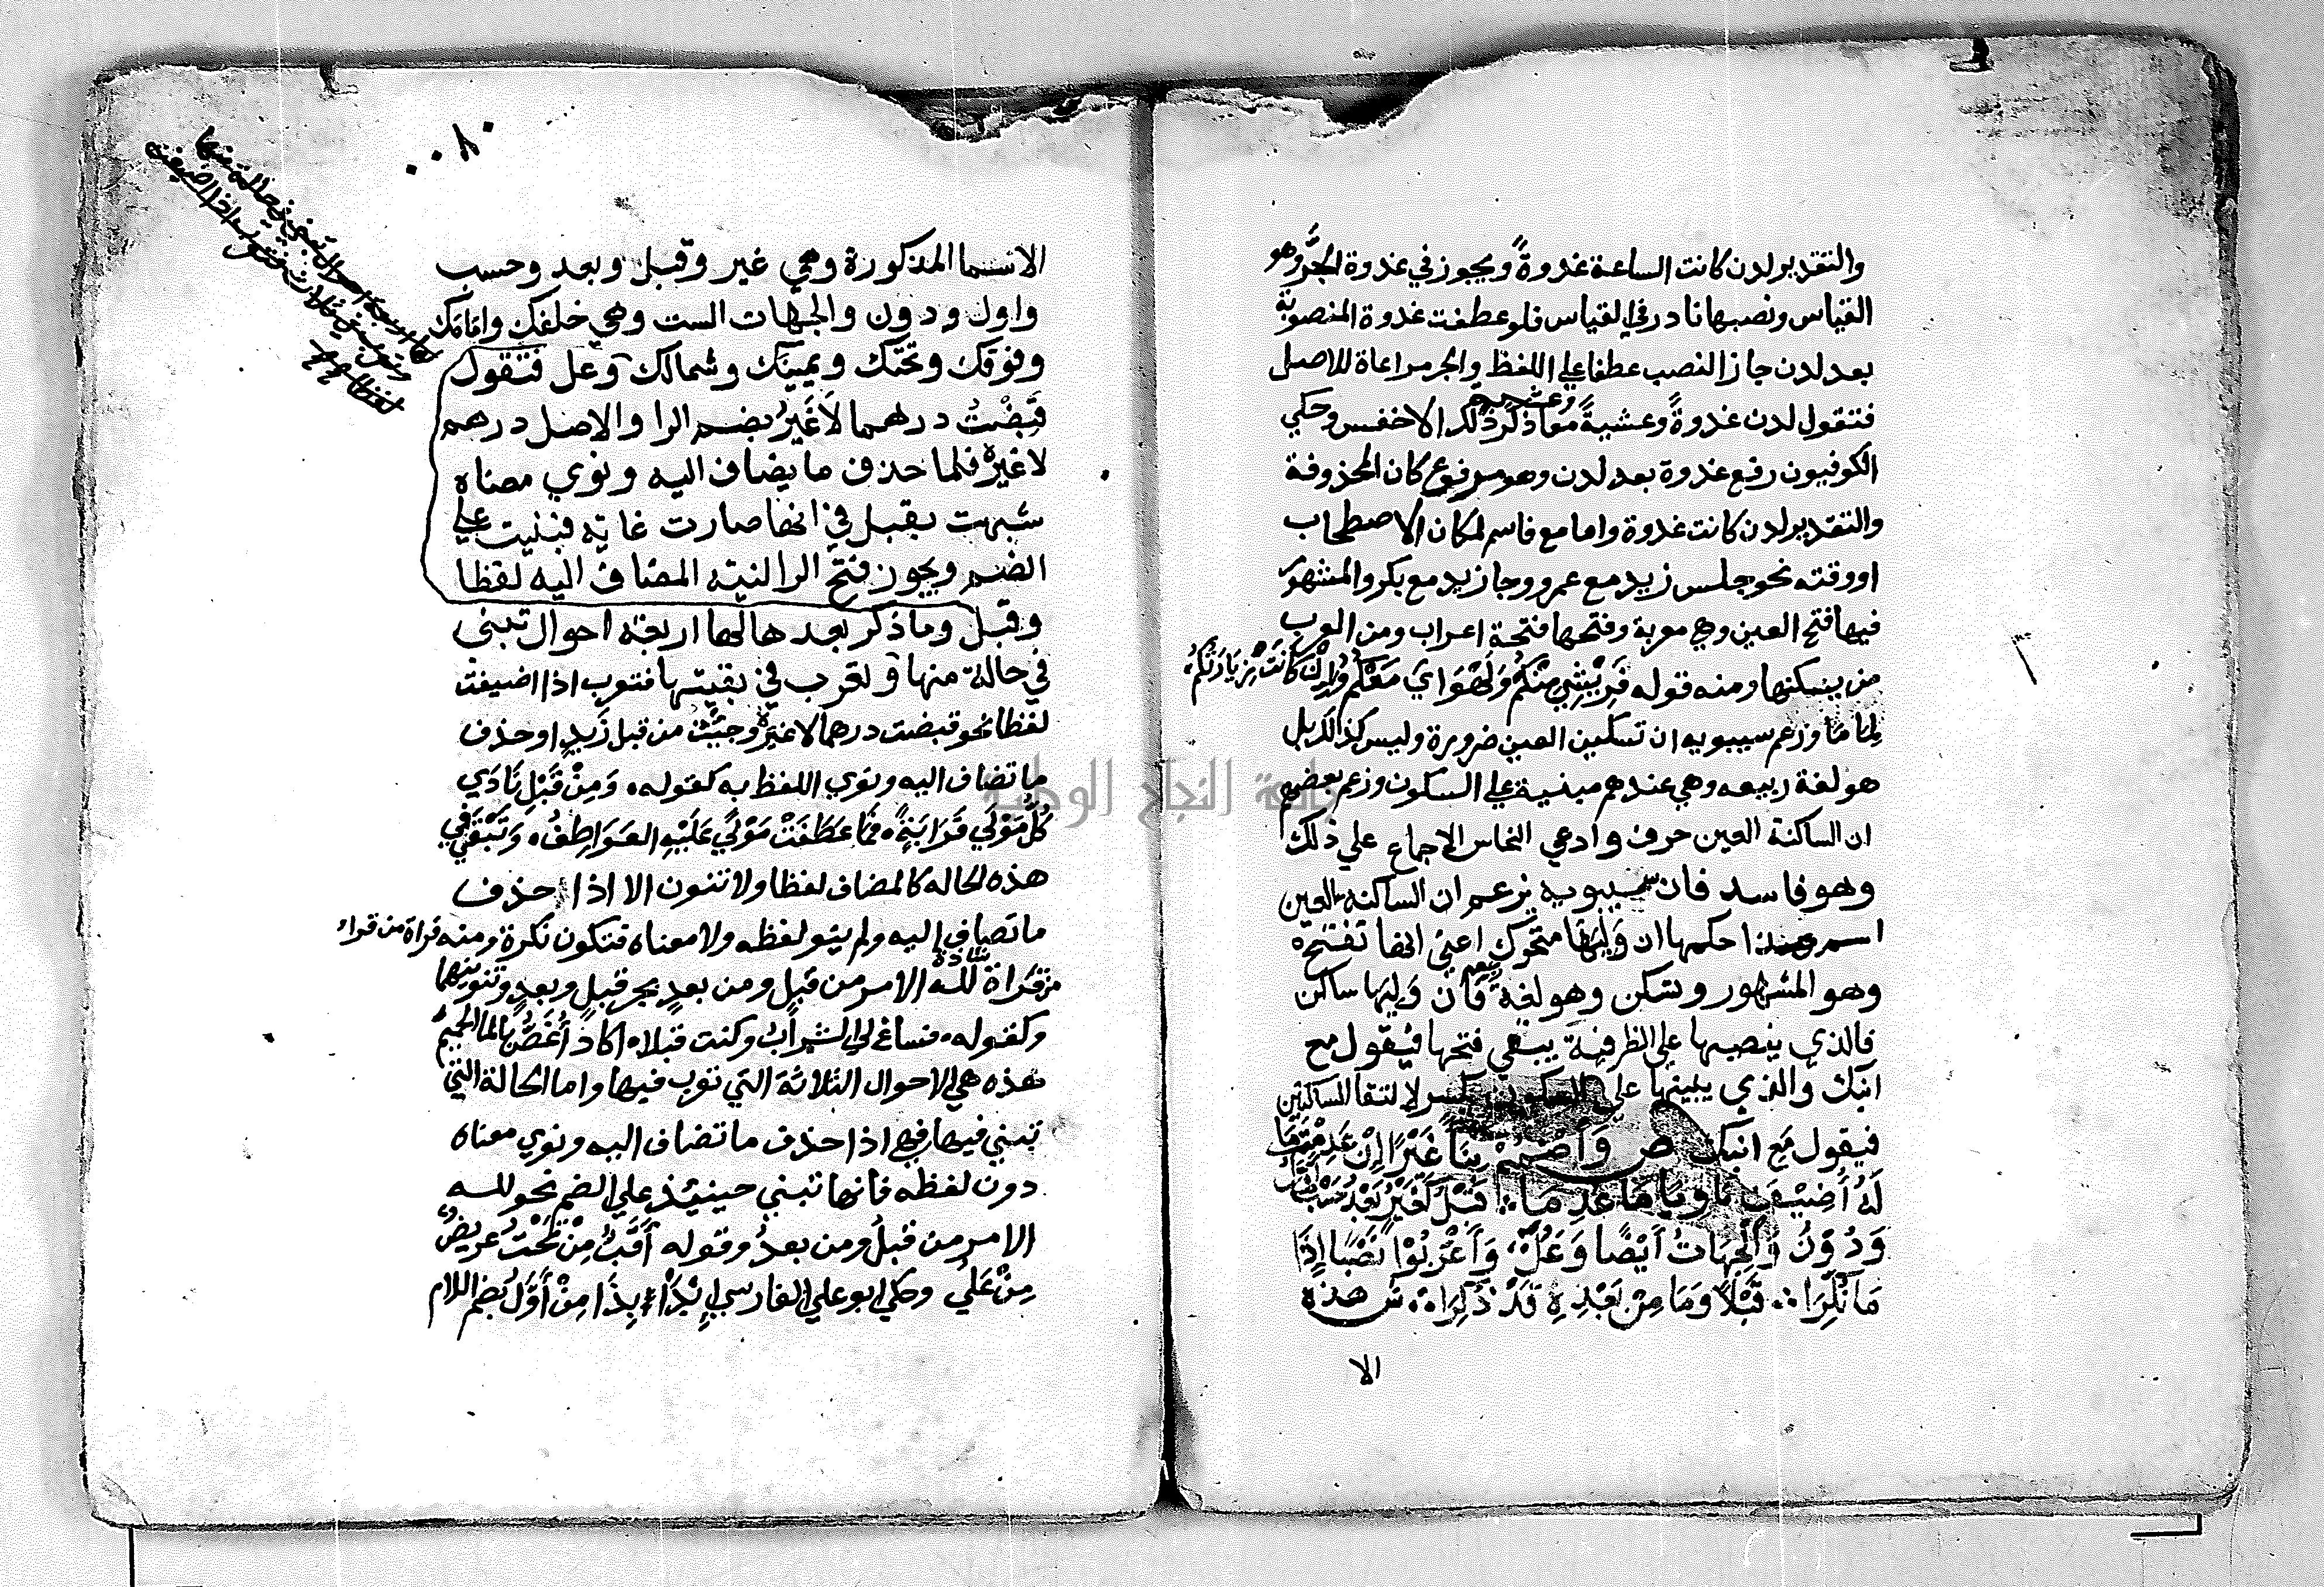 والتقدير لدن كانت الساعة غدوةً ويجوز في غدوة الجرُّ وهو
القياس ونصبها نادر في القياس فلو عطفت على غدوة المنصوبة
بعد لدن جاز النصب عطفا علي اللفظ والجر مراعاة للاصل
فتقول لدن غدوةً وعشيةً وعشية معا ذكر ذلك الاخفس وحكي
الكوفيون رفع غدوة بعد لدن وهو مرفوع كان المحذوفة
والتقدير لدن كانت غدوة واما مع فاسم لمكان الاصطحاب
او وقته نحو جلس زيد مع عمرو وجا زيد مع بكر والمشهور
فيها فتح العين وهي معربة وفتحها فتحة اعراب ومن العرب
من يسكنها ومنه قوله فَرِيْشِي مِنْكُمُ وَلَهْوَايَ مَعْكُمُ وَإِنْ كَانَتْ زِيَارَتُكُمُ
لِمَامَا وزعم سيبويه ان تسكين العين ضرورة وليس كذالك بل
هو لغة ربيعه وهي عندهم مبنية علي السكون وزعم بعضهم
ان الساكنة العين حرف وادعي النحاس الاجماع علي ذلك
وهو فاسد فان سيبويه يزعم ان الساكنة العين
اسم هذا حكمها ان وَلِيَهَا متحرك اعني انها تفتح
وهو المشهور وتسكن وهو لغة ربيعه فان وَليها ساكن
فالذي ينصبها علي الظرفية يبقي فتحها فيقول مع
ابنك والذي يبينها علي السكون يكسر لالتقا الساكنين
فيقول مَعِ ابنك ص وَاضْمُمْ بِنَاً غَيْرًا اِنْ عَدِمْتَ مَا
لَهُ أُضِيْفَ نَاوِيًا مَا عُدِمَا قَبْلُ كَغَيْرُ بَعْدُ حَسْبُ أَوَّلُ
وَدُوْنَ وَالْجِهَاتُ اَيْضًا وَعَلُ وَاَعْرَبُوْا نَصْبًا إِذَا
مَا نُكِّرَا قَبْلًا وَمَا مِنْ بَعْدِهِ قَدْ ذُكِرَا ش هذه
الا
٠٠٨٠
الاسما المذكورة وهي غير وقبل وبعد وحسب
واول ودون والجهات الست وهي خلفك وامامك
وفوقك وتحتك ويمينك وشمالك وعل فتقول
قَبَضْتُ درهما لَاغَيْرُ بضم الرا والاصل درهم
لا غيره فلما حذف ما يضاف اليه ونوي معناه
شبهت بقبل في انها صارت غاية فبنيت علي
الضم ويجوز فتح الرا لنية المضاف اليه لفظا
وقبل وما ذكر بعدها لها اربعة احوال تبنى
في حالة منها وتعرب في بقيتها فتعرب اذا اضيفت
لفظا نحو قبضت درهما لا غيره وجئت من قبل زَيدٍ او حذف
ما تضاف اليه ونوي اللفظ به كقوله وَمِنْ قَبْلِ نَادَي
كُلُّ مَوْلَي قَرَابَتِهِ فَمَا عَطَفَتْ مَوْلَيً عَلَيْهِ العَوَاطِفُ وَتَبْقَي في
هذه الحاله كالمضاف لفظا ولا تنون الا اذا حذف
ما تضاف اليه ولم ينو لفظه ولا معناه فتكون نكرة ومنه قراة من قراء
شاذة لله الامر من قبلٍ ومن بعدٍ بجر قبلٍ وبعدٍ وتنوينهما
وكقوله فساغ لي الشرابُ وكنت قبلا اكاد أُغَصُّ بالما الحميم
هذه هي الاحوال الثلاثة التي تعرب فيها واما الحالة التي
تبني فيها فهي اذا حذف ما تضاف اليه ونوي معناه
دون لفظه فانها تبني حينيئذ علي الضم نحو لله
الامر من قبلُ ومن بعدُ وقوله أَقَبُّ مِنْ تَحْتُ عريضٌ
مِنْ عَلُ وحكي ابو علي الفارسي اِبْدَأْ بِذَا مِنْ أَوَّلُ بضم اللام